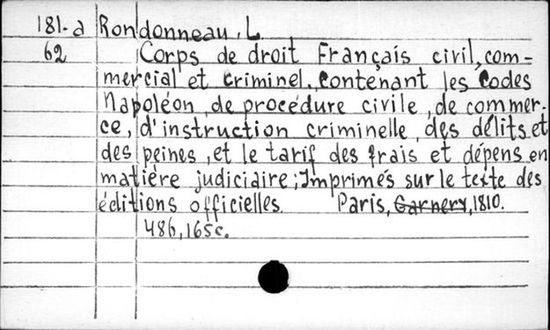 181-a Rondonneau, L.
62 Corps de droit Français civil, com=
mercial et criminel, contenant les Codes
Napoléon, de procédure civile, de commer-
ce, d'instruction criminelle, des délits et
des peines, et le tarif des frais et dépens en
matière judiciaire; Imprimés sur le texte des
éditions officielles. Paris, Garnery, 1810.
486, 165c.